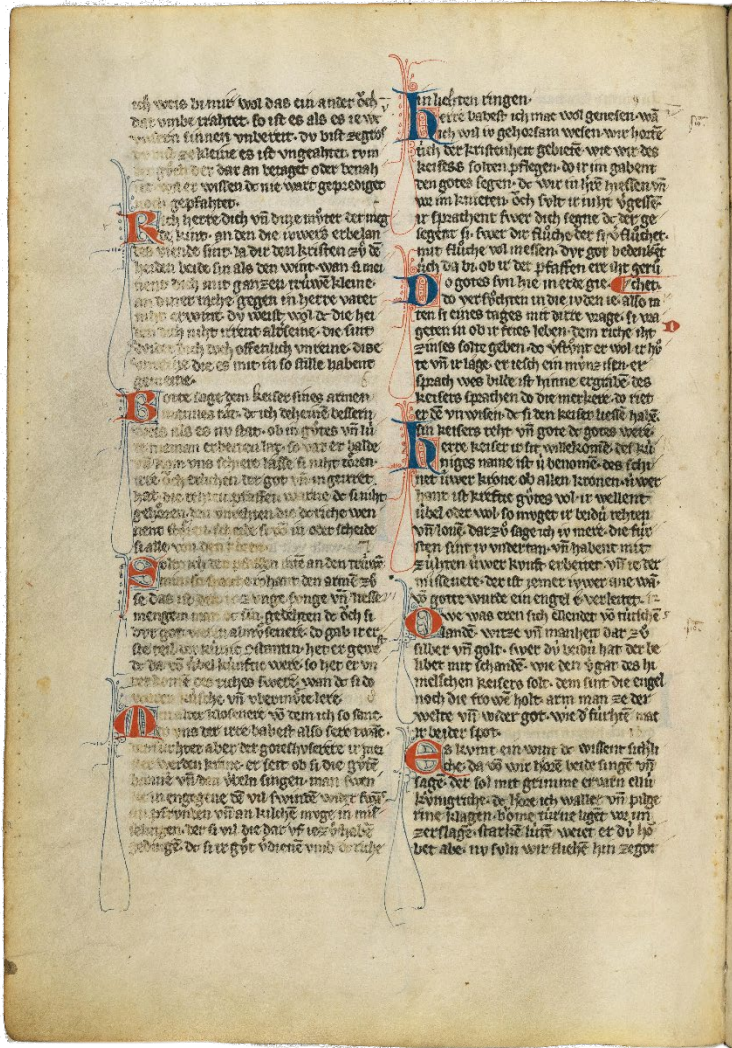 ich weis bi mir wol das ein ander ŏch
dar vmbe trahtet· so ist es als es ie we
sinnen vnbereit· dv bist ze gros
ze kleine es ist vngeahtet·
der dar an betaget oder benah
wissen de nie wart geprediget
gepfahtet·
Rich herre dich vñ dine mv̊ter der meg
de kint· an den die iuwers erbelan
des viende sint· la dir den kristen zv̊ dē
heiden beide sin als den wint· wan si mei
nent dich mit ganzen trúwē kleine·
an diner rache gegen in herre vater
niht erwint· dv weist wol dc die hei
den dich niht irrent alterseine· die sint
wider dich doch offenlich vnreine· dise
die es mit in so stille habent
gemeine·
Botte sage dem keiser sines armen
mannes rat· dc ich deheinē bessern
weis als es nv stat· ob in gv̊tes vñ lú
te nieman erbeiten lat· so var er balde
vñ kom vns schiere lasse si niht tören·
irre ŏch etlichen der got vñ in geirret
hat· die rehten pfaffen warne dc si niht
gehören· den vnrehten die dc riche wen
nent scheide si vō in oder scheide
si alle von den
Solt ich den pfaffen raten an den trúwē
min· so sprche ir hant den armē zv̊
se das ist din ir zvnge svnge vñ liesse
mengem man dc sin· gedehten dc ŏch si
dvr got almv̊senere· do gab ir er
ste teil der kúnic Constantin· het er gewe
dc da vō v́bel kúnftic were· so het er vn
der komē des riches swere· wan dc si do
waren kúsche vñ v́bermv̊te lere·
Min alter klosenere vō dem ich so sanc·
do vns der irre babest also sere twāc·
der fúrhtet aber der gotes hvsere ir mei
ster werden kranc· er seit ob si die gv̊ten
banne vñ den v́beln singen· man swen
ke in engegene dē vil swinden wider swāc·
an pfrv̊nden vñ an kilchē mvge in mis
selingen· der si vil die dar vf iezv̊ habē
gedingē· dc si ir gv̊t v̓dienē vmb dc riche
in liehten ringen·
Herre babest ich mac wol genesen· wā
ich wil iv gehorsam wesen· wir horte
úch der kristenheit gebietē· wie wir des
keisers solten pflegen· do ir im gabent
den gotes segen· dc wir in hiesē herre vñ
vor im knieten· ŏch svlt ir niht v̓gesse·
ir sprachent swer dich segne dc der ge
segent si· swer dir flůche der si v̓flůchet·
mit flůche vol messen· dvr got bedenkēt
úch da bi· ob ir der pfaffen ere iht gerů
chet·
Do gotes svn hie in erde gie·
do versv̊chten in die ivden ie· also ta
ten si eines tages mit dirre vrage· si vra
geten in ob ir fries leben· dem riche iht
zinses solte geben· do v̓stv̊nt er wol ir hv̊
te vñ ir lage· er iesch ein múnz isen· er
sprach wes bilde ist hinne ergrabē· des
keisers sprachen do die merkere· do riet
er dē vnwisen· dc si den keiser liesse habē·
sin keisers reht· vñ gote dc gotes were·
Herre keiser ir sit willekomē· der kú
niges name ist ú benomē· des schi
net úwer krone ob allen kronen· úwer
hant ist krefte gv̊tes vol· ir wellent
úbel oder wol· so mvget ir beidú rehten
vñ lonē· dar zv̊ sage ich iv mere· die fúr
sten sint iv vndertan· vñ habent mit
zúhten úwer kvnft erbeitet· vñ ie der
missenere· der ist iemer iuwer ane wā·
vō gotte wurde ein engel e verleitet·
Owe was eren sich ellendet vō túrschē
landē· witze vñ manheit dar zv̊
silber vñ golt· swer dv́ beidú hat der be
libet mit schandē· wie den v̓gat des hi
melschen keisers solt· dem sint die engel
noch die frowē holt· arm man ze der
welte vñ wider got· wie d̓ fúrhtē mac
ir beider spot·
Es kvmt ein wint dc wissent sichli
che· da vō wir hörē beide singē vñ
sagē· der sol mit grimme ervarn ellú
kv́nigriche· dc hore ich waller vñ pilge
rine klagen· bome túrne ligēt vor im
zerslagē· starkē lúten weiet er dv́ hŏ
bet abe· nv svln wir fliehē hin ze got